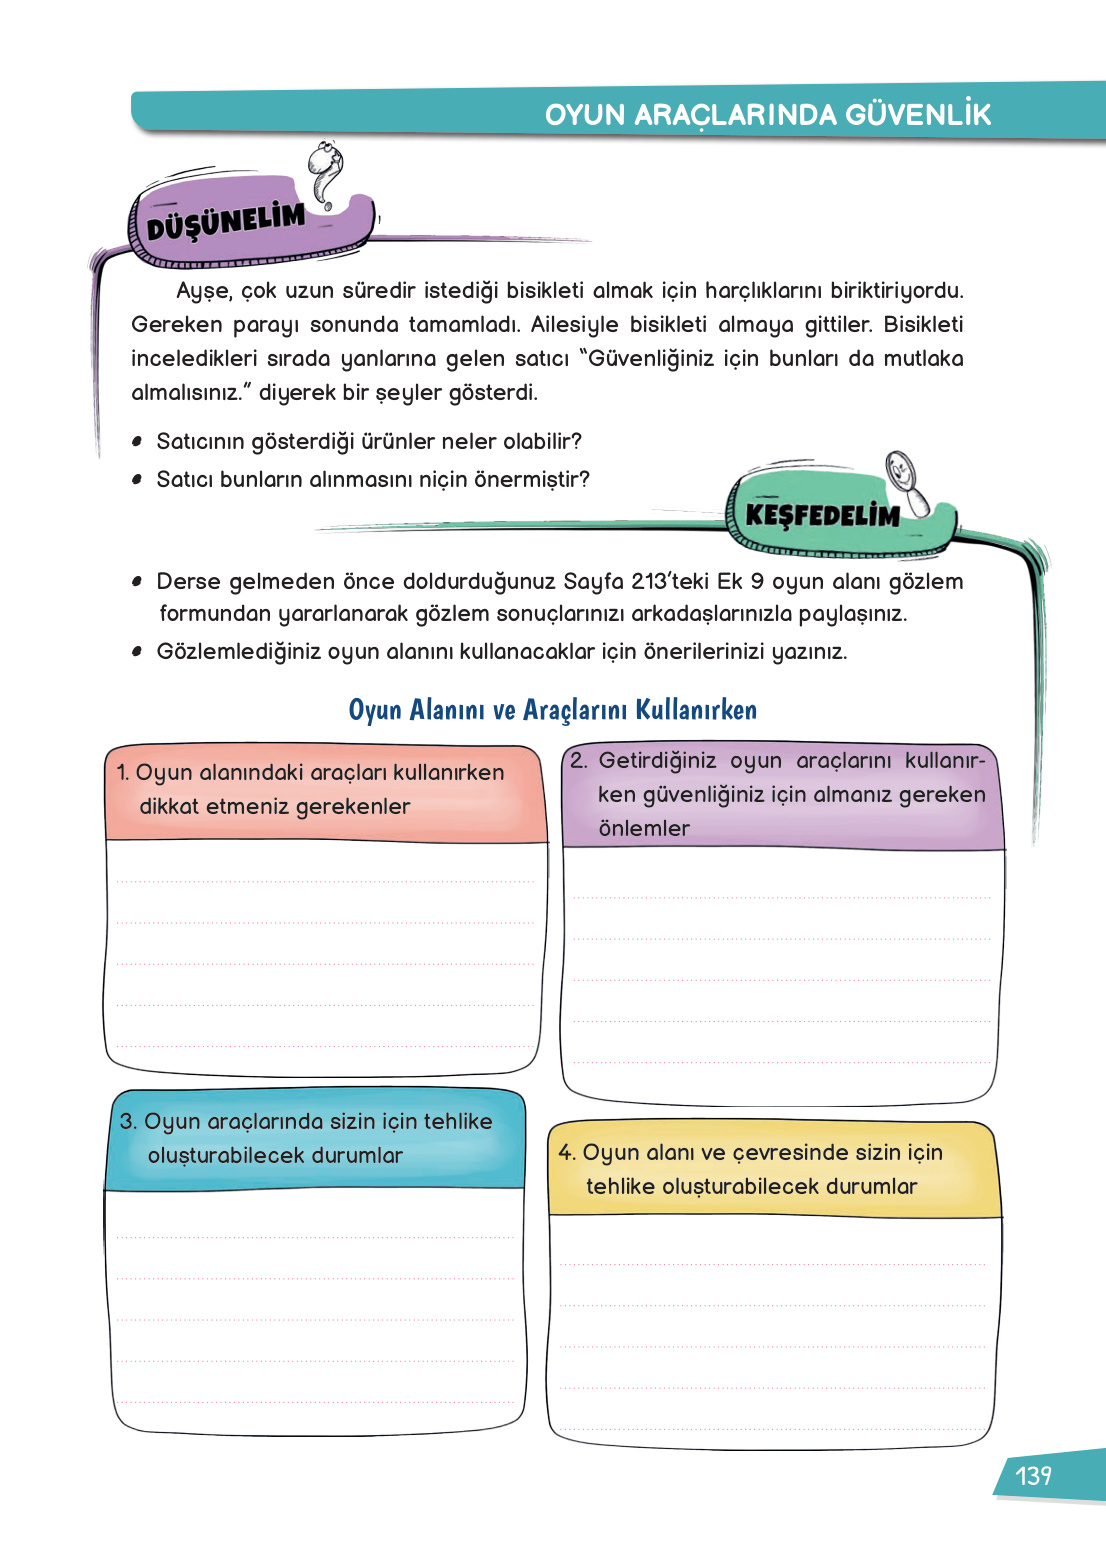 OYUN ARAÇLARINDA GÜVENLİK
DÜŞÜNELİM
Ayşe, çok uzun süredir istediği bisikleti almak için harçlıklarını biriktiriyordu.
Gereken parayı sonunda tamamladı. Ailesiyle bisikleti almaya gittiler. Bisikleti
inceledikleri sırada yanlarına gelen satıcı “Güvenliğiniz için bunları da mutlaka
almalısınız.” diyerek bir şeyler gösterdi.
• Satıcının gösterdiği ürünler neler olabilir?
• Satıcı bunların alınmasını niçin önermiştir?
KEŞFEDELİM
• Derse gelmeden önce doldurduğunuz Sayfa 213’teki Ek 9 oyun alanı gözlem
formundan yararlanarak gözlem sonuçlarınızı arkadaşlarınızla paylaşınız.
• Gözlemlediğiniz oyun alanını kullanacaklar için önerilerinizi yazınız.
Oyun Alanını ve Araçlarını Kullanırken
1. Oyun alanındaki araçları kullanırken
dikkat etmeniz gerekenler
2. Getirdiğiniz oyun araçlarını kullanır-
ken güvenliğiniz için almanız gereken
önlemler
3. Oyun araçlarında sizin için tehlike
oluşturabilecek durumlar
4. Oyun alanı ve çevresinde sizin için
tehlike oluşturabilecek durumlar
139